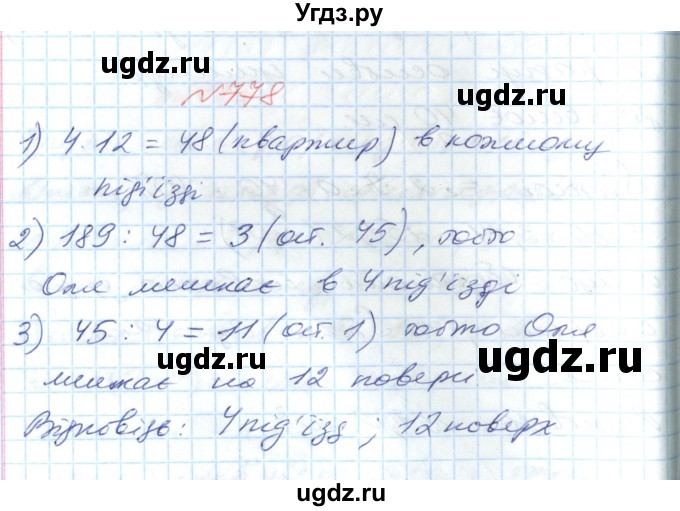 Угдз.ру
ugdz.ru
ugdz.ru
№778
ugdz.ru
1) 4 · 12 = 48 (квартир) в кожному
під'їзді
ugdz.ru
ugdz.ru
2) 189 : 48 = 3 (ост. 45), тобто
Оля мешкає в 4 під'їзді
3) 45 : 4 = 11 (ост. 1) тобто Оля
ugdz.ru
ugdz.ru
мешкає на 12 поверсі
Відповідь: 4 під'їзд ; 12 поверх
ugdz.ru
ugdz.ru
ugdz.ru